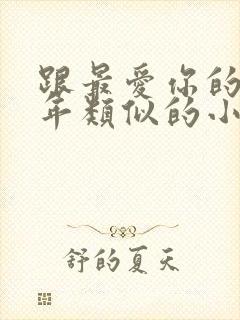 跟最爱你的
年类似的小
舒的夏天